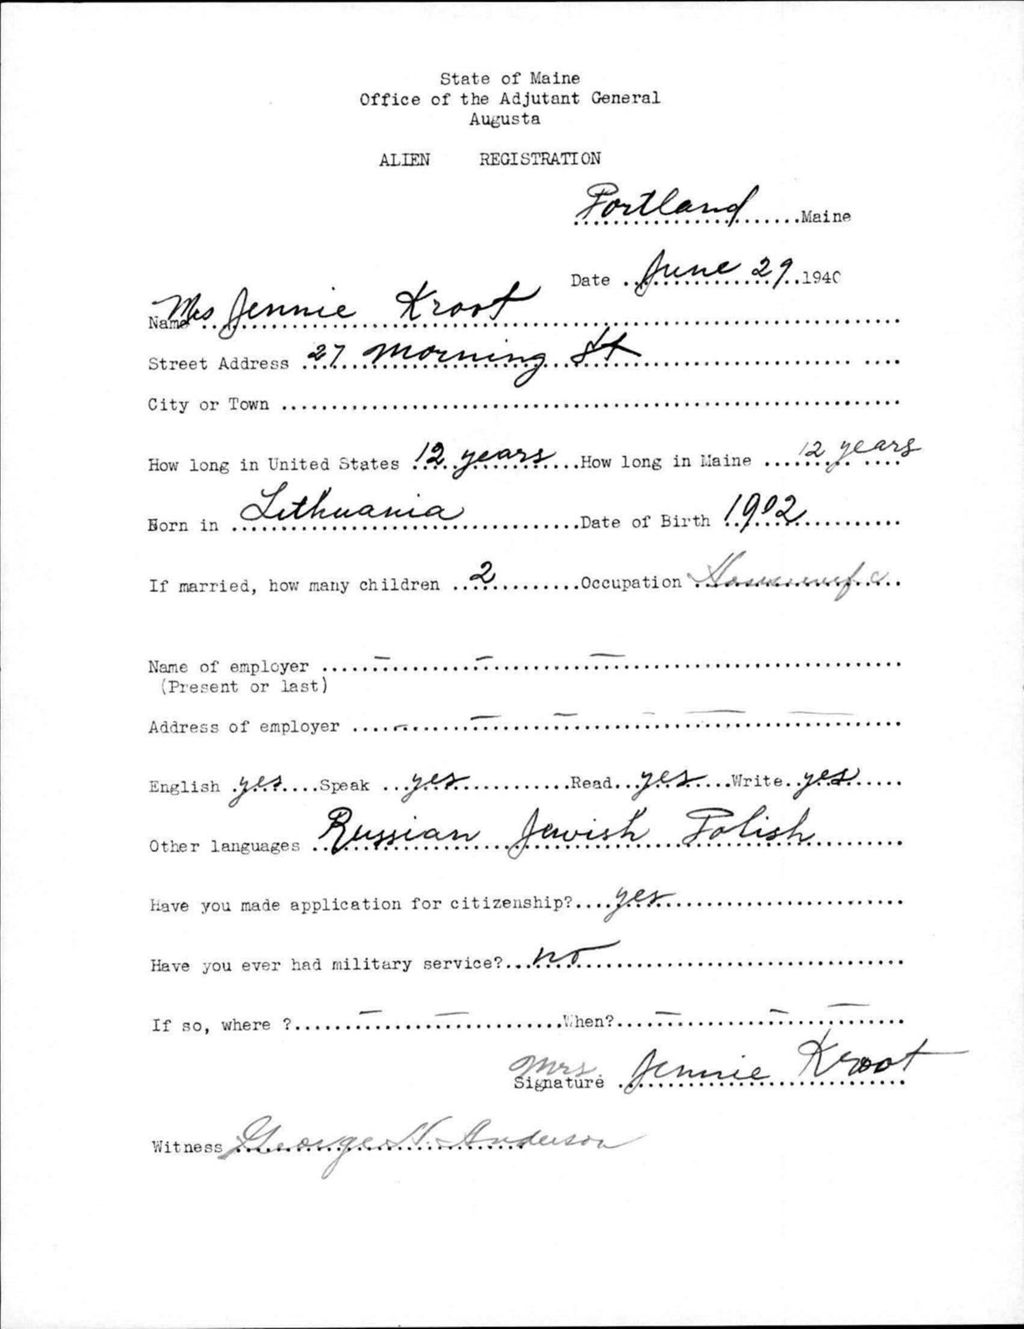 State of Maine
Office of the Adjutant General
Augusta
ALIEN REGISTRATION
Portland Maine
Date June 29 1940
Name Mrs Jennie Kroot
Street Address 27 Morning St
City or Town
How long in United States 12 years How long in Maine 12 years
Born in Lithuania Date of Birth 1902
If married, how many children 2 Occupation Housewife
Name of employer
(Present or last)
Address of employer
English yes Speak yes Read yes Write yes
Other languages Russian Jewish Polish
Have you made application for citizenship? yes
Have you ever had military service? no
If so, where ? When?
Mrs. Jennie Kroot
Signature
Witness George N. Anderson